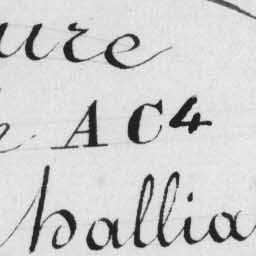 ure
AC4
hallia